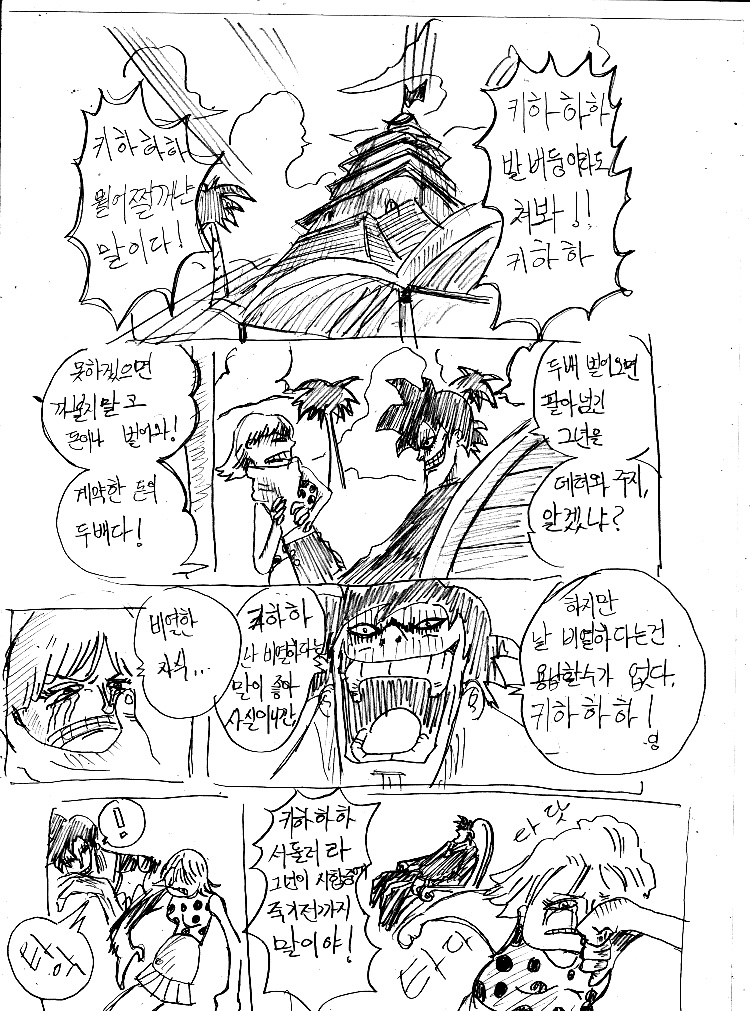 키하하하
뭘어쩔꺼냔
말이다!
키하하하
발버둥이라도
쳐봐!!
키하하
못하겠으면
까불지말고
돈이나 벌어와!
계약한 돈의
두배다!
두배 벌어오면
팔아넘긴
그녀를
데려와 주지,
알겠냐?
비열한
자식...
키하하
난 비열하다는
말이 좋아
사실이니깐
하지만
날 비열하다는건
용납할수가 없다.
키하하하!
!
키하하하
서둘러라
죽기전까지
말이야!
다닷
타다